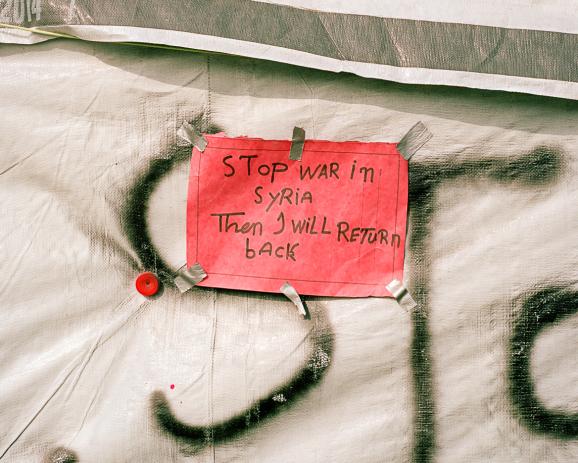 2014
STOP WAR in
SYRiA
Then I WiLL RETURn
bACK
STO